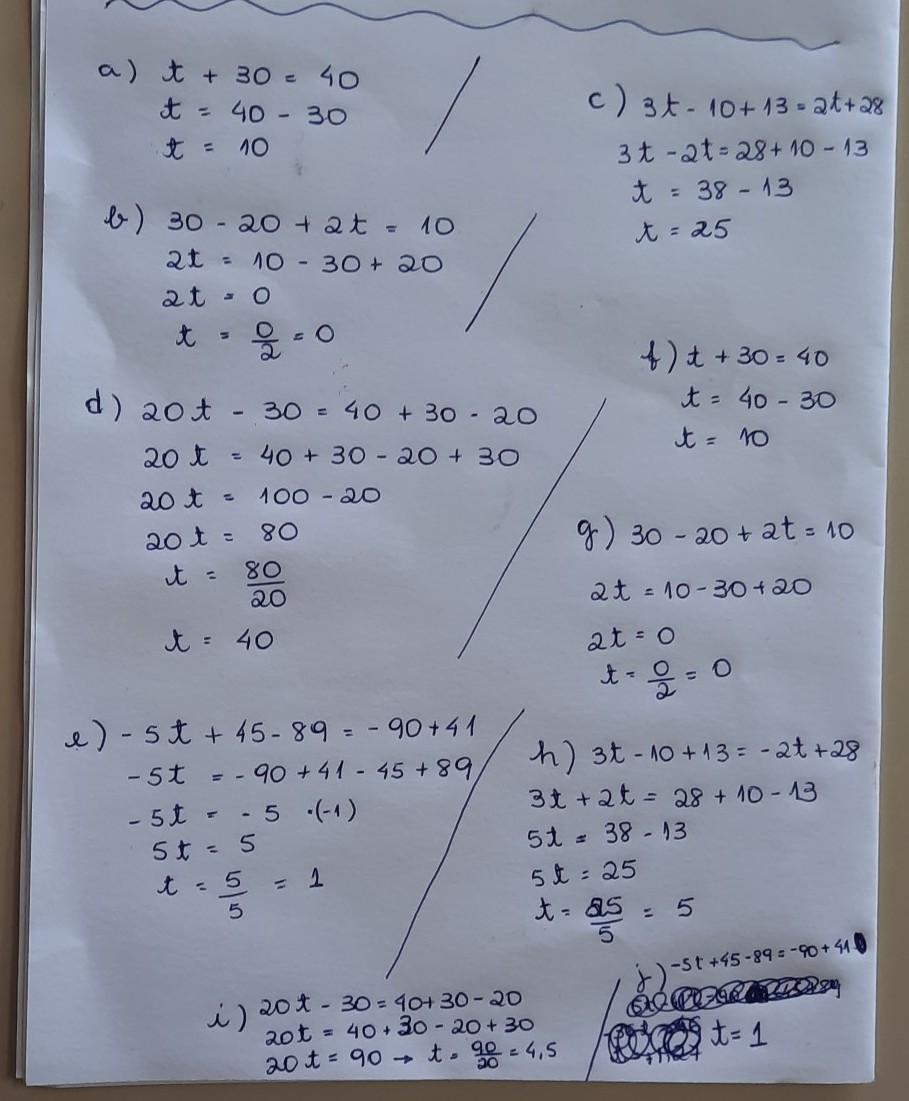 a) t + 30 = 40
t = 40 - 30
t = 10
b) 30 - 20 + 2t = 10
2t = 10 - 30 + 20
2t = 0
t = 0/2 = 0
c) 3t - 10 + 13 = 2t + 28
3t - 2t = 28 + 10 - 13
t = 38 - 13
t = 25
d) 20t - 30 = 40 + 30 - 20
20t = 40 + 30 - 20 + 30
20t = 100 - 20
20t = 80
t = 80/20
t = 40
e) -5t + 45 - 89 = -90 + 41
-5t = -90 + 41 - 45 + 89
-5t = -5 ·(-1)
5t = 5
t = 5/5 = 1
f) t + 30 = 40
t = 40 - 30
t = 10
g) 30 - 20 + 2t = 10
2t = 10 - 30 + 20
2t = 0
t = 0/2 = 0
h) 3t - 10 + 13 = -2t + 28
3t + 2t = 28 + 10 - 13
5t = 38 - 13
5t = 25
t = 25/5 = 5
i) 20t - 30 = 40 + 30 - 20
20t = 40 + 30 - 20 + 30
20t = 90 → t = 90/20 = 4,5
j) -5t + 45 - 89 = -90 + 41
t = 1